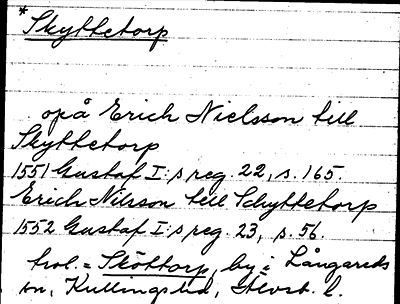 *Skyttetorp
opå Erich Nielsson till
Skyttetorp
1551 Gustaf I:s reg. 22, s. 165.
Erich Nilsson till Schyttetorp
1552 Gustaf I:s reg. 23, s. 56.
trol. = Sköttorp, by i Långareds
sn, Kullings hd, Älvsb. l.